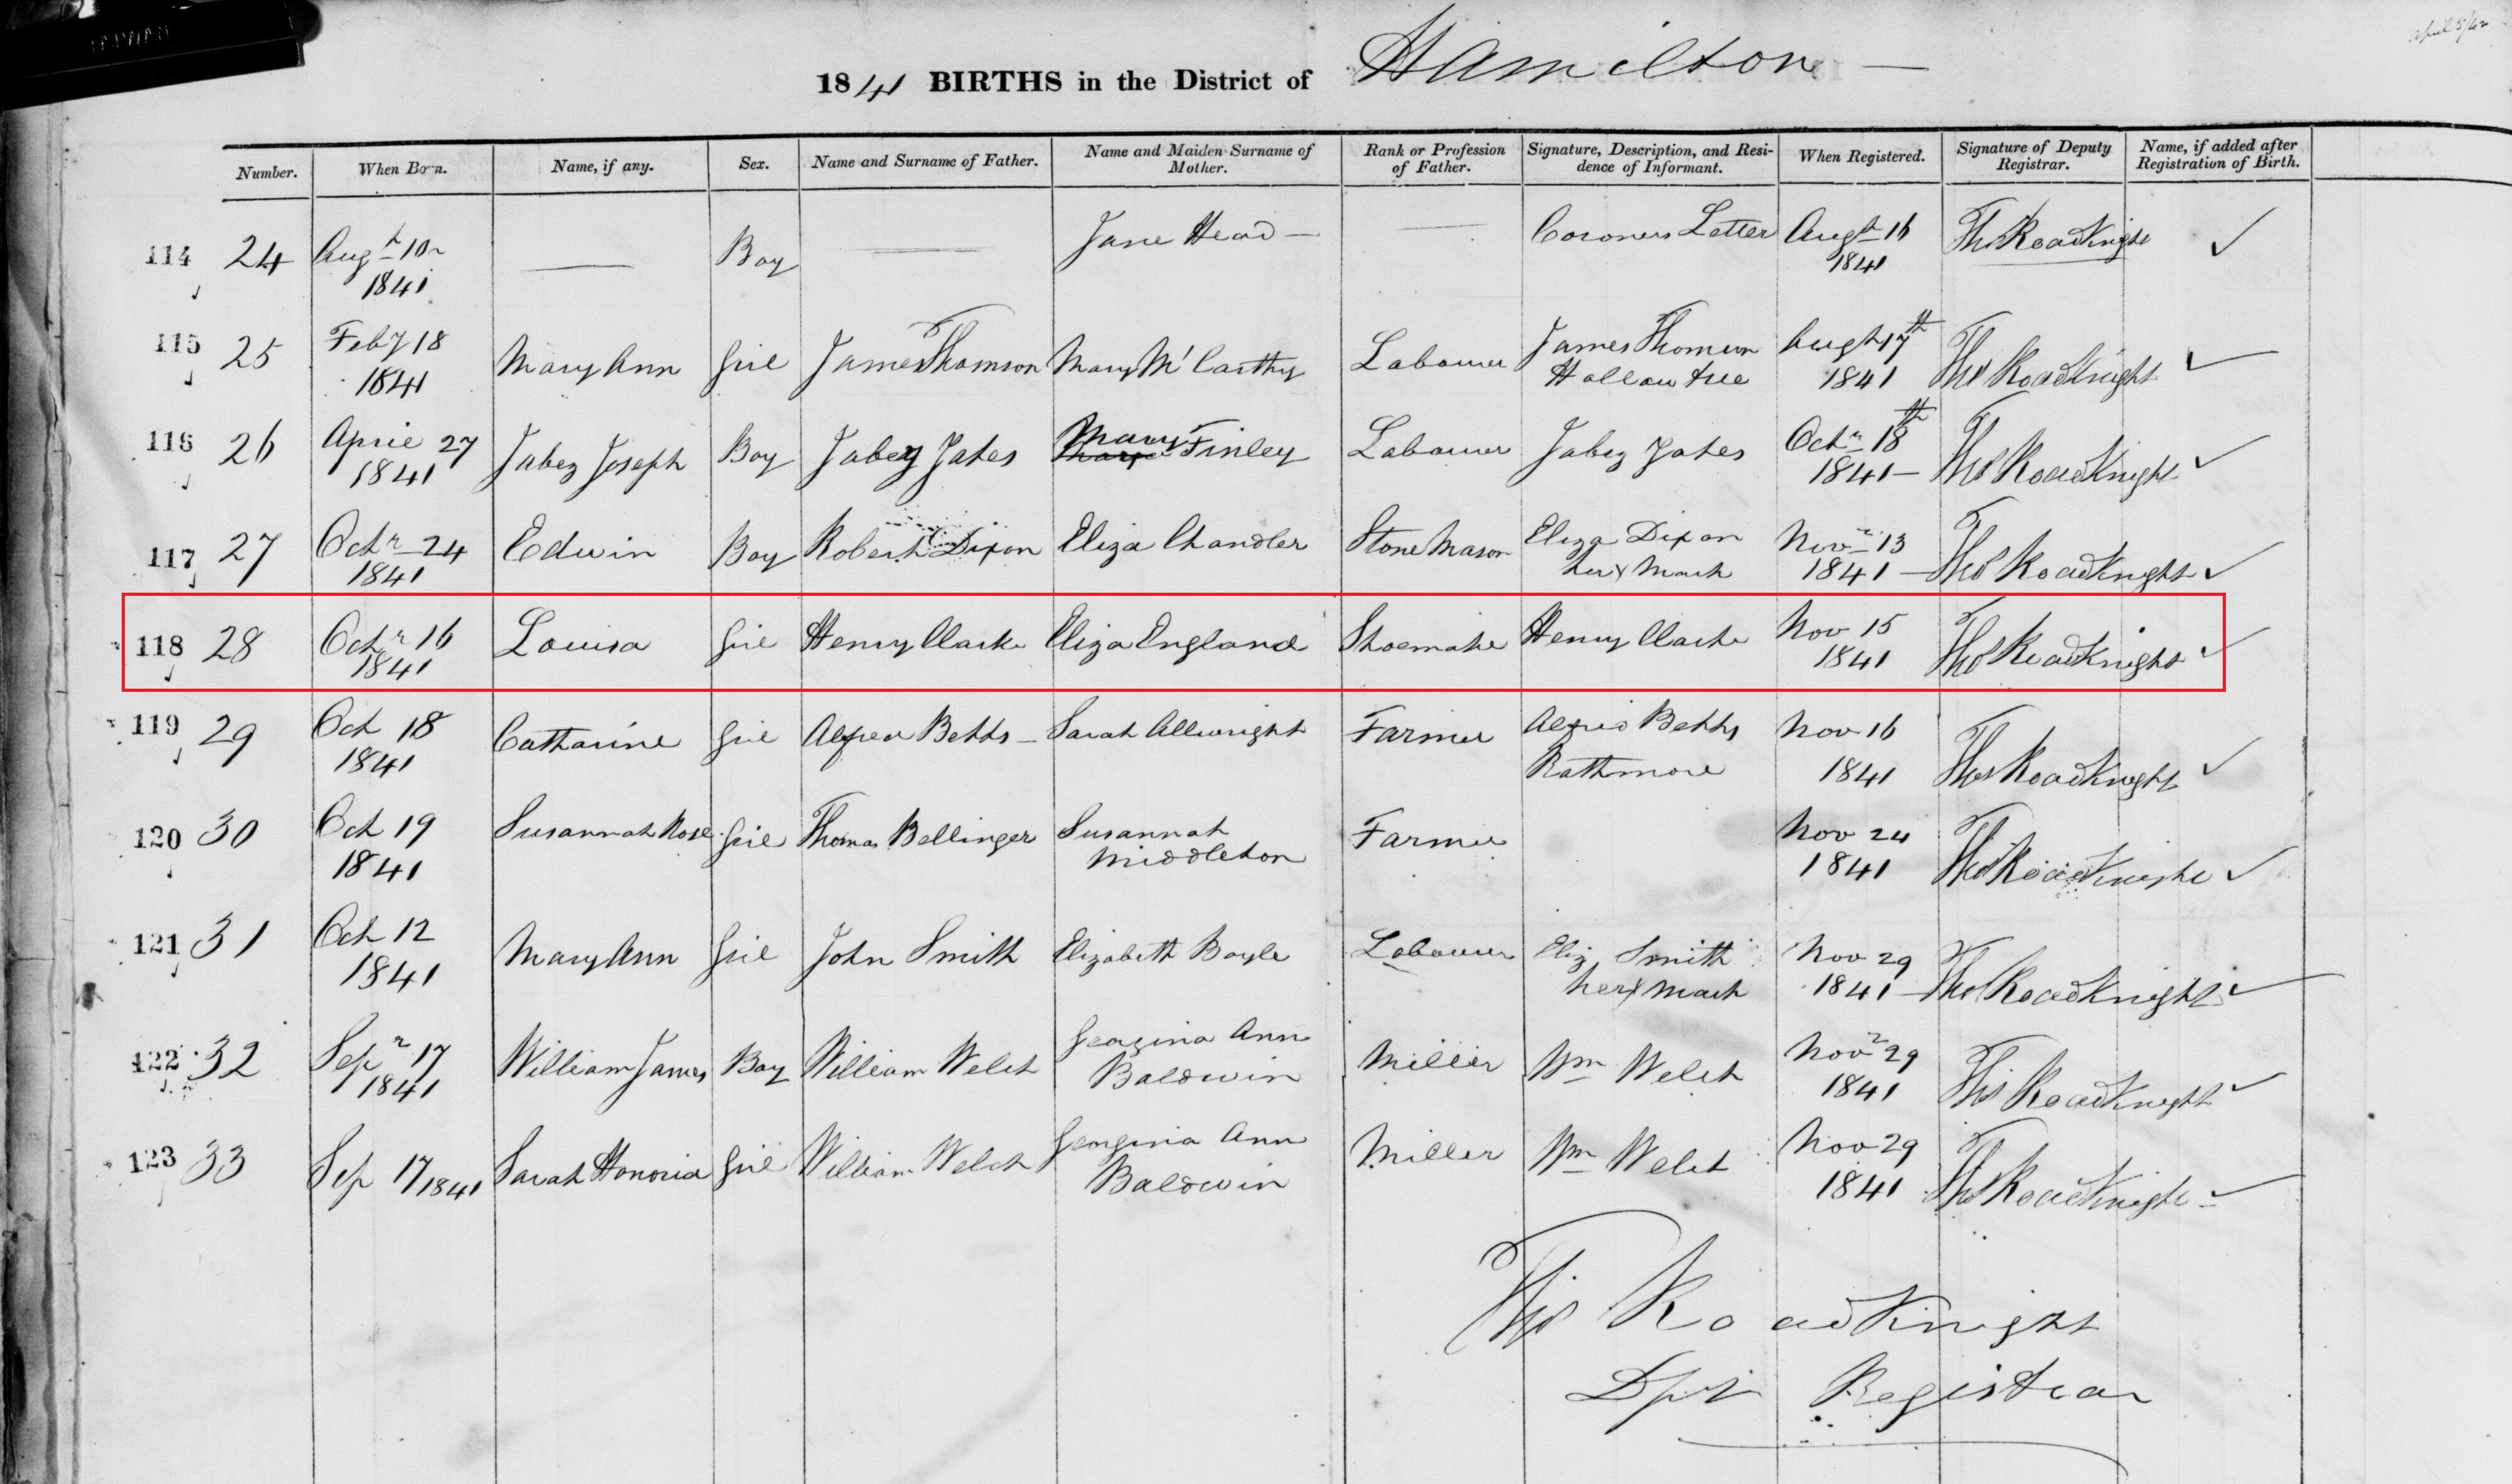 1841 BIRTHS in the District of Hamilton —
Number. When Born. Name, if any. Sex. Name and Surname of Father. Name and Maiden Surname of Mother. Rank or Profession of Father. Signature, Description, and Residence of Informant. When Registered. Signature of Deputy Registrar. Name, if added after Registration of Birth.
114 24 Augt 10 1841 — Boy — Jane Head — — Coroners Letter Augt 16 1841 Thos Roadknight
115 25 Feby 18 1841 Mary Ann Girl James Thomson Mary McCarthy Labourer James Thomson Hollow tree Augt 17th 1841 Thos Roadknight
116 26 April 27 1841 Jabez Joseph Boy Jabez Yates Mary Finley Labourer Jabez Yates Octr 18th 1841 — Thos Roadknight
117 27 Octr 24 1841 Edwin Boy Robert Dixon Eliza Chandler Stone Mason Eliza Dixon her x Mark Novr 13 1841 — Thos Roadknight
118 28 Octr 16 1841 Louisa Girl Henry Clarke Eliza England Shoemaker Henry Clarke Nov 15 1841 Thos Roadknight
119 29 Oct 18 1841 Catharine Girl Alfred Betts — Sarah Allwright Farmer Alfred Betts Rathmore Nov 16 1841 Thos Roadknight
120 30 Oct 19 1841 Susannah Rose Girl Thomas Bellinger Susannah Middleton Farmer Nov 24 1841 Thos Roadknight
121 31 Oct 12 1841 Mary Ann Girl John Smith Elizabeth Boyle Labourer Eliz Smith her x mark Nov 29 1841 — Thos Roadknight
122 32 Sepr 17 1841 William James Boy William Welch Georgina Ann Baldwin Miller Wm Welch Novr 29 1841 Thos Roadknight
123 33 Sep 17 1841 Sarah Honoria Girl William Welch Georgina Ann Baldwin Miller Wm Welch Nov 29 1841 Thos Roadknight
Thos Roadknight
Dpy Registrar